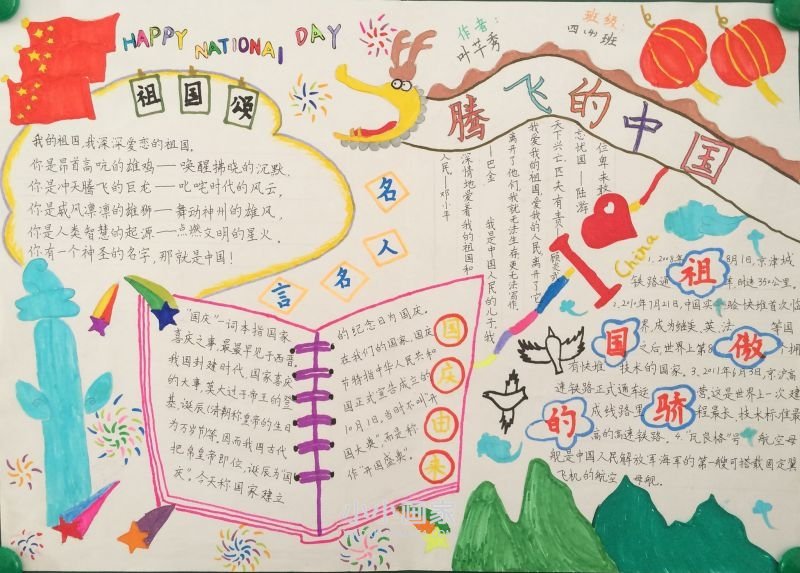 HAPPY NATIONAL DAY
作者:
叶芊秀
班级:
四.(4)班
腾飞的中国
祖国颂
我的祖国,我深深爱恋的祖国.
你是昂首高吭的雄鸡——唤醒拂晓的沉默,
你是冲天腾飞的巨龙——叱咤时代的风云,
你是威风凛凛的雄狮——舞动神州的雄风,
你是人类智慧的起源——点燃文明的星火.
你有一个神圣的名字,那就是中国!
名人名言
位卑未敢
忘忧国—陆游
天下兴亡,匹夫有责——顾炎武
我爱我的祖国,爱我的人民,离开了它,
离开了他们,我就无法生存,更无法写作.
——巴金
我是中国人民的儿子,我
深情地爱着我的祖国和
人民.—邓小平
I
China
国庆由来
"国庆"一词本指国家
喜庆之事,最最早见于西晋.
我国封建时代、国家喜庆
的大事,莫大过于帝王的登
基、诞辰(清朝称皇帝的生日
为万岁节)等.因而我国古代
把帝皇帝即位、诞辰为"国
庆".今天称国家建立
的纪念日为国庆.
在我们的国家,国庆
节特指中华人民共和
国正式宣告成立的
10月1日.当时不叫"开
国大典",而是称
作"开国盛典".
祖国的骄傲
1、2008年8月1日,京津城
铁路通车,时速350公里.
2.2010年7月21日,中国实验快堆首次临
界,成为继美、英、法等国
之后,世界上第8个拥
有快堆技术的国家。3.2011年6月3日,京沪高
速铁路正式通车运营.这是世界上一次建
成线路里程最长、技术标准最
高的高速铁路.4."瓦良格"号航空母
舰是中国人民解放军海军的第一艘可搭载固定翼
飞机的航空母舰.